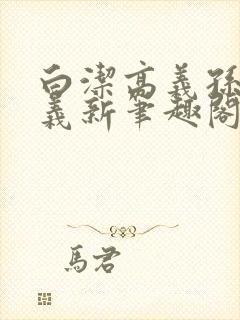 白潔高義孫
義新筆趣閣
馬君